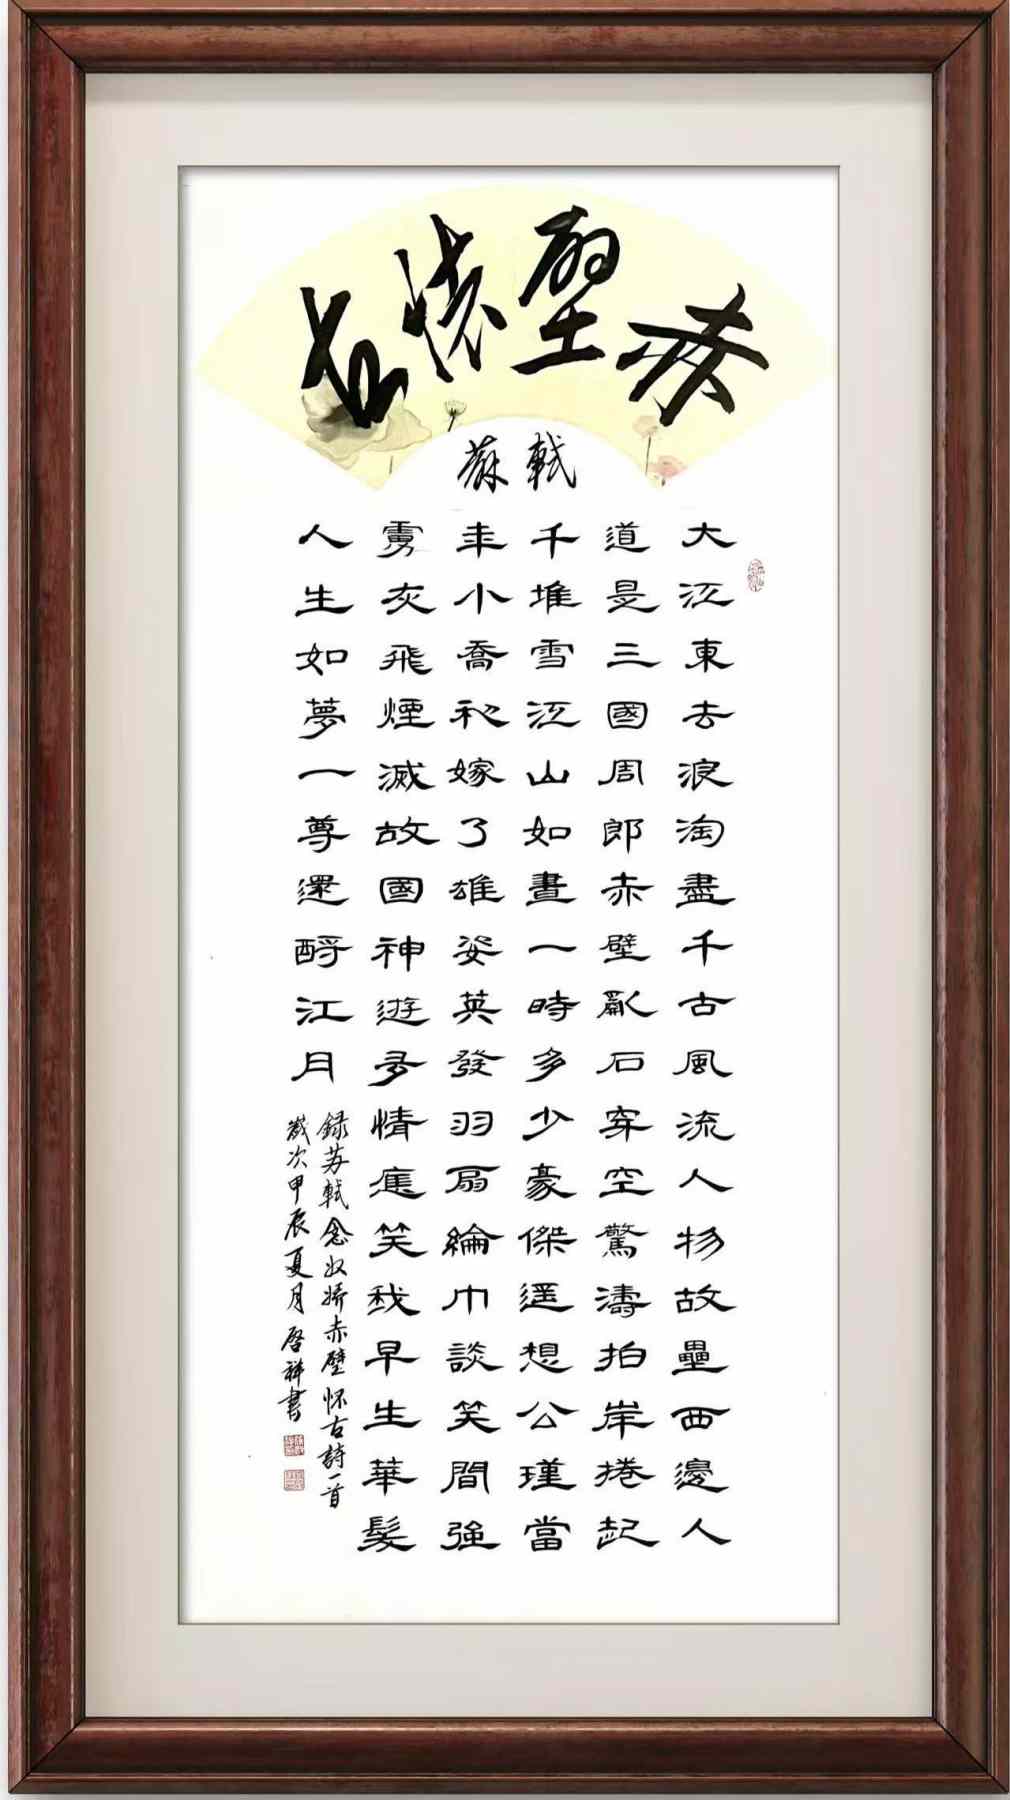 赤壁懷古
蘇軾
大江東去浪淘盡千古風流人物故壘西邊人
道是三國周郎赤壁亂石穿空驚濤拍岸捲起
千堆雪江山如畫一時多少豪傑遥想公瑾當
年小喬初嫁了雄姿英發羽扇綸巾談笑間強
虜灰飛煙滅故國神遊多情應笑我早生華髮
人生如夢一尊還酹江月
録苏軾念奴娇赤壁怀古詩一首
歲次甲辰夏月啓祥書